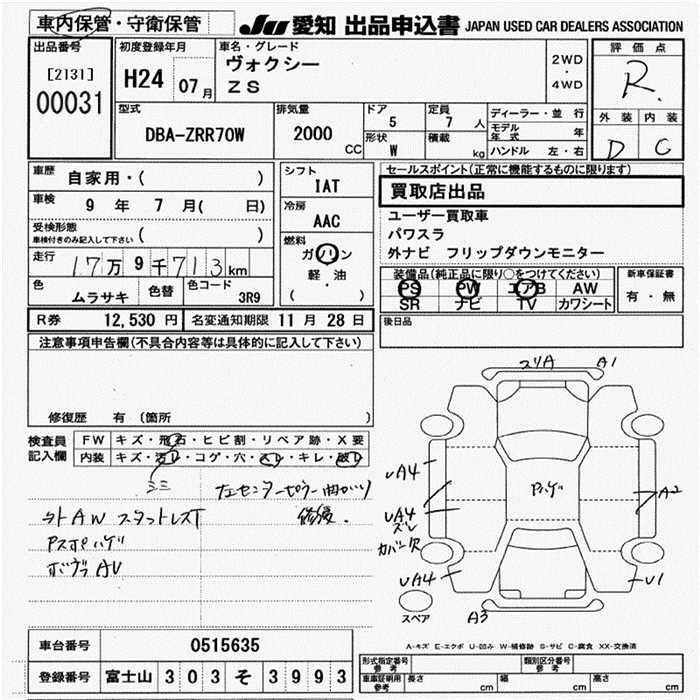 車内保管・守衛保管
JU 愛知 出品申込書 JAPAN USED CAR DEALERS ASSOCIATION
出品番号
[2131]
00031
初度登録年月
H24 07月
車名・グレード
ヴォクシー
ZS
2WD
・
4WD
評価点
R
外装 内装
D C
型式
DBA-ZRR70W
排気量
2000 CC
ドア
5
形状
W
定員
7 人
積載
kg
ディーラー・並行
モデル年式 年
ハンドル 左・右
車歴
自家用・( )
車検 9 年 7 月( 日)
受検形態
車検付きのみ記入して下さい ( )
走行 17万9千713km
色
ムラサキ
色替
色コード
3R9
シフト
IAT
冷房
AAC
燃料
ガソリン
軽油
( ・ )
セールスポイント(正常に機能するものに限ります)
買取店出品
ユーザー買取車
パワスラ
外ナビ フリップダウンモニター
装備品(純正品に限り○をつけてください)
PS PW エアB AW
SR ナビ TV カワシート
新車保証書
有・無
後日品
R券 12,530 円 名変通知期限 11 月 28 日
注意事項申告欄(不具合内容等は具体的に記入して下さい)
修復歴 有 (箇所 )
検査員記入欄
FW キズ・飛石・ヒビ割・リペア跡・X要
内装 キズ・汚レ・コゲ・穴・スレ・キレ・破レ
シミ
左センターピラー曲がり
修復.
外AW スタットレスT
Aスポハゲ
ボヴラAU
スリA A1
UA4
UA4
ズレ
カバー欠
UA4
Pハゲ
A2
U1
A3
スペア
A-キズ E-エクボ U-凹み W-補修跡 S-サビ C-腐食 XX-交換済
車台番号 0515635
登録番号 富士山 303 そ 3993
形式指定番号 参考
類別区分番号 参考
車庫証明用 参考
長さ cm 幅 cm 高さ cm